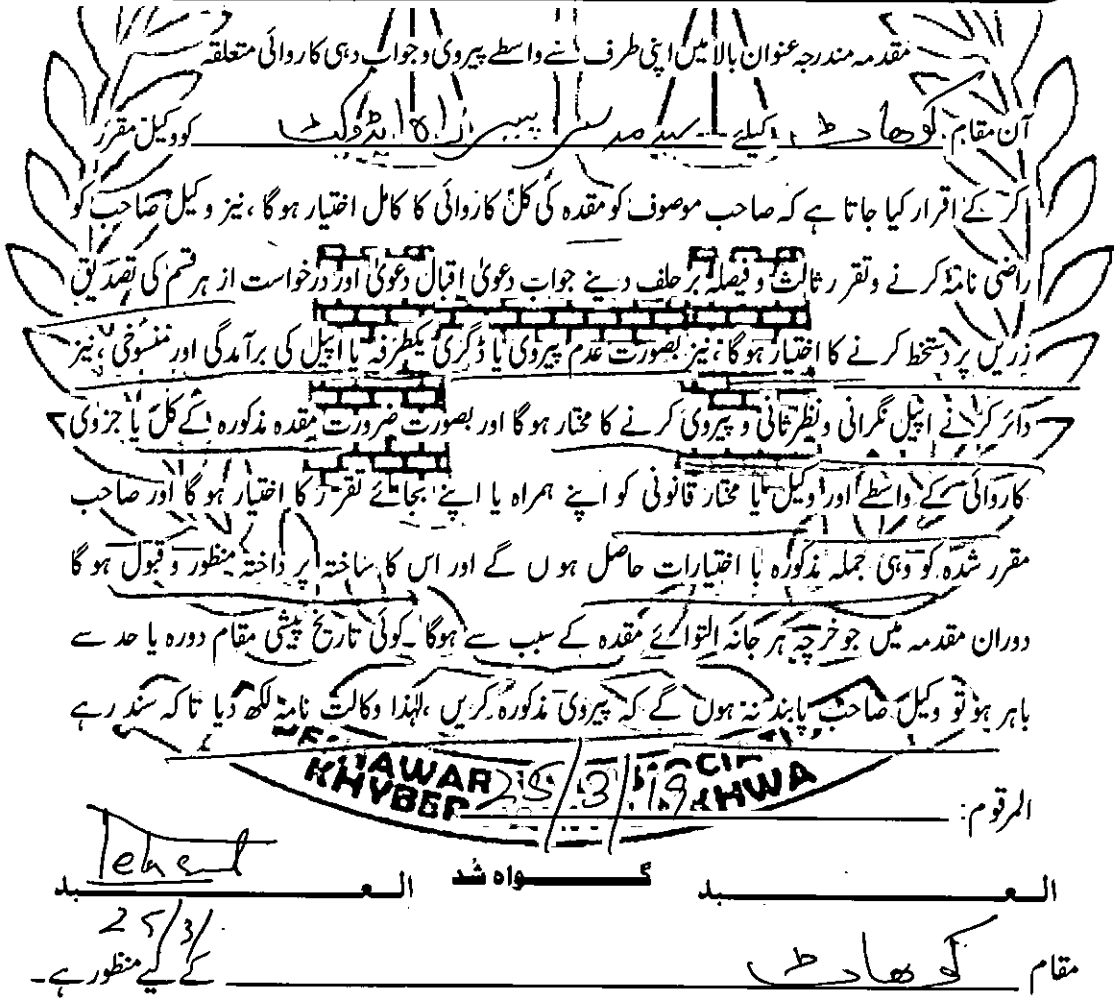 مقدمہ مندرجہ عنوان بالا میں اپنی طرف سے واسطے پیروی و جواب دہی کاروائی متعلقہ
آن مقام کوھاٹ کیلئے ایڈوکیٹ کو وکیل مقرر
کر کے اقرار کیا جاتا ہے کہ صاحب موصوف کو مقدہ کی کل کاروائی کا کامل اختیار ہو گا ، نیز وکیل صاحب کو
راضی نامہ کرنے وتقرر ثالث و فیصلہ بر حلف دینے جواب دعویٰ اقبال دعویٰ اور درخواست از ہر قسم کی تصدیق
زریں پر دستخط کرنے کا اختیار ہو گا ، نیز بصورت عدم پیروی یا ڈگری یکطرفہ یا اپیل کی برآمدگی اور منسوخی ، نیز
دائر کرنے اپیل نگرانی و نظر ثانی و پیروی کرنے کا مختار ہو گا اور بصورت ضرورت مقدہ مذکورہ کے کل یا جزوی
کاروائی کے واسطے اور وکیل یا مختار قانونی کو اپنے ہمراہ یا اپنے بجائے تقرر کا اختیار ہو گا اور صاحب
مقرر شدہ کو وہی جملہ مذکورہ با اختیارات حاصل ہو ں گے اور اس کا ساختہ پر داختہ منظور و قبول ہو گا
دوران مقدمہ میں جو خرچہ ہر جانہ التوائے مقدہ کے سبب سے ہوگا ۔ کوئی تاریخ پیشی مقام دورہ یا حد سے
باہر ہو تو وکیل صاحب پابند نہ ہوں گے کہ پیروی مذکورہ کریں ، لہٰذا وکالت نامہ لکھ دیا تا کہ سند رہے
KHYBER KHWA
المرقوم: 25/3/19
العبد گواہ شد العبد
25/3/
مقام کوھاٹ کے لیے منظور ہے۔